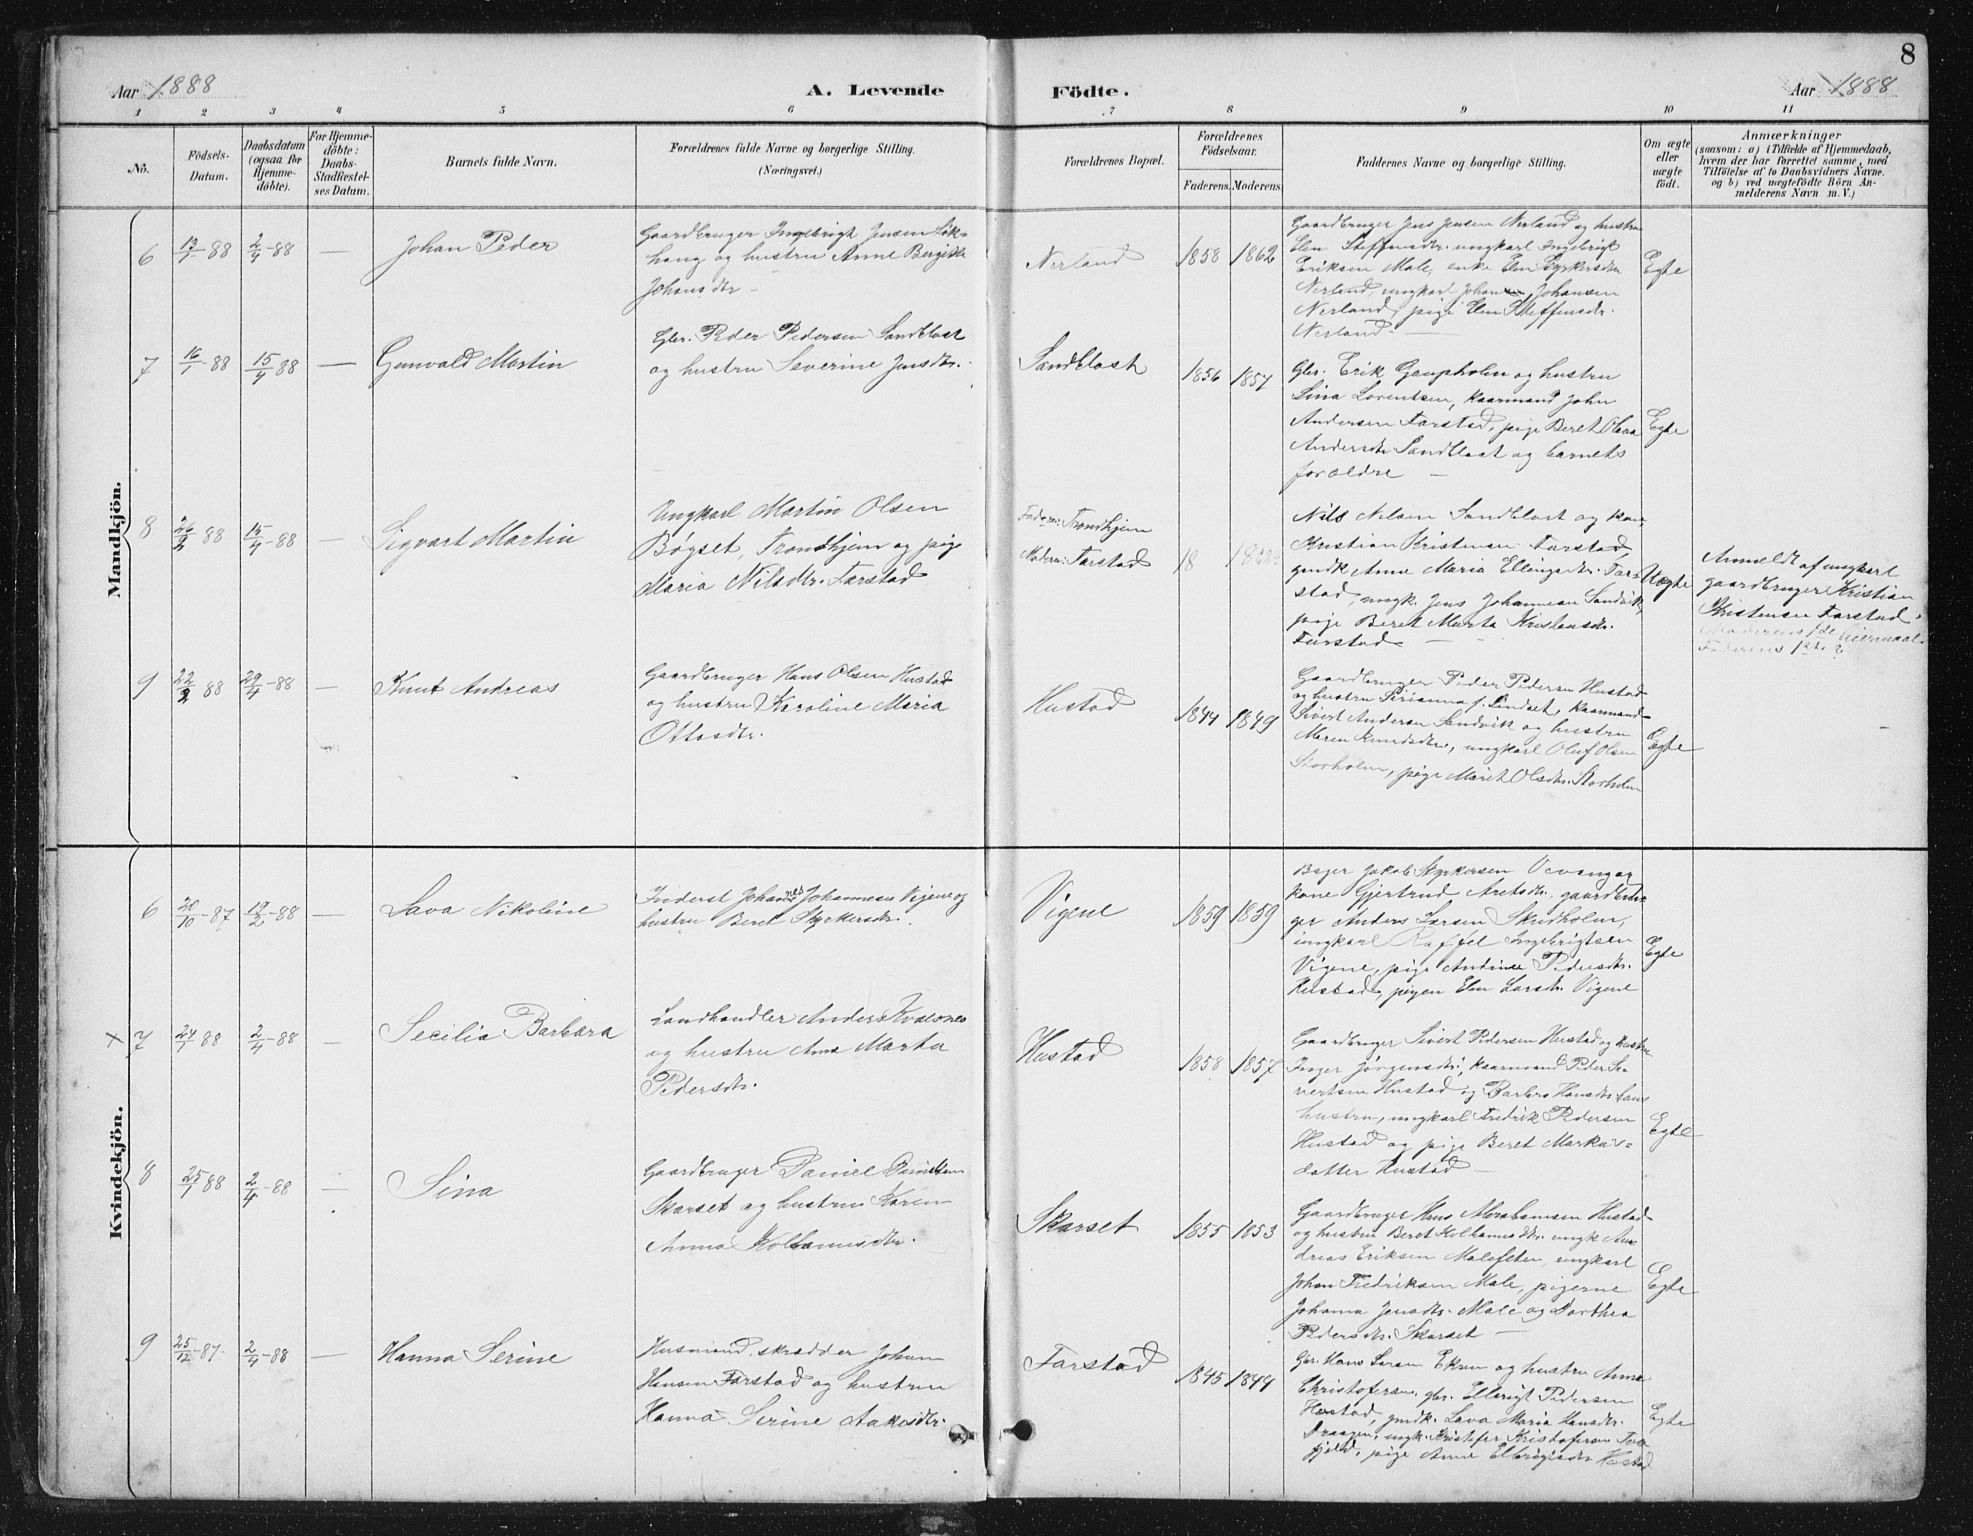 8
Aar 1888
A. Levende
Födte.
Aar 1888
1 2 3 4 5 6 7 8 9 10 11
No.
Födsels-
Datum.
Daabsdatum
(ogsaa for
Hjemme-
döbte).
For Hjemme-
döbte:
Daabs-
Stadfæstel-
ses Datum.
Barnets fulde Navn.
Forældrenes fulde Navne og borgerlige Stilling.
(Næringsvei.)
Forældrenes Bopæl.
Forældrenes
Födselsaar.
Faderens. Moderens.
Faddernes Navne og borgerlige Stilling.
Om ægte
eller
uægte
födt.
Anmærkninger
(saasom: a) i Tilfælde af Hjemmedaab,
hvem der har forrettet samme, med
Tilföielse af to Daabsvidners Navne.
og b) ved uægtefödte Börn An-
melderens Navn m. V.)
Mandkjön.
6 13/1-88 2/4-88 — Johan Peder
Gaardbruger Ingebrigt Jensen Løk-
haug og hustru Anne Bergitte
Johansdtr —
Nerland 1858 1862
Gaardbruger Jens Jensen Nerland og hustru
Elen Steffensdtr. ungkarl Ingebrigt
Eriksen Male, enke Elen Styrkersdtr
Nerland, ungkarl Johan Johansen
Nerland, pige Elen Steffensdtr.
Nerland —
Egte
7 16/1-88 15/4-88 — Gunvald Martin
Gbr. Peder Pedersen Sandblost
og hustru Severine Jensdtr.
Sandblost 1856 1857
Gbr. Erik Gaupholm og hustru
Lina Lorentsen, kaarmand John
Andersen Farstad, pige Beret Olava
Andersdtr Sandblost og barnets
forældre —
Egte
8 26/2 88 15/4-88 — Sigvart Martin
Ungkarl Martin Olsen
Bøgset, Trondhjem og pige
Maria Nilsdtr. Farstad
Faderen: Trondhjem
Moderen: Farstad 18
Nils Nilsen Sandblost og kone
Kristian Kristensen Farstad,
gmdk. Anne Maria Ellingsdtr. Far-
stad, ungk. Jens Johannesen Sandvik,
pige Beret Marta Kristensdtr.
Farstad —
Uægte
Anmeldt af ungkarl
gaardbruger Kristian
Kristensen Farstad.
Moderens 1de leiermaal
Faderens 1ste ?
9 22/2 88 29/4-88 — Knut Andreas
Gaardbruger Hans Olsen Hustad
og hustru Karoline Maria
Ottosdtr.
Hustad 1844 1849
Gaardbruger Peder Pedersen Hustad
og hustru Sirianna f. Lindset, kaarmand
Sivert Andersen Sandvik og hustru
Maren Knudsdtr, ungkarl Oluf Olsen
Storholm, pige Marit Olsdtr. Storholm
Egte
Kvindekjön.
6 20/10-87 19/2-88 — Lava Nikoline
Inderst Johannes Johannesen Vigene og
hustru Beret Styrkersdtr.
Vigene 1859 1859
Bøger Jakob Styrkersen Vevang og
kone Gjertrud Aretsdtr. gaardbru-
ger Anders Larsen Skredholm,
ungkarl Raffel Ingebrigtsen
Vigene, pige Andrine Pedersdtr.
Hustad, pigen Elen Larsdtr. Vigene
Egte
x 7 24/1 88 2/4-88 — Secilia Barbara
Landhandler Anders Kvalsnes
og hustru Ane Marta
Pedersdtr.
Hustad 1858 1857
Gaardbruger Sivert Pedersen Hustad og hustru
Inger Jørgensdtr, kaarmand Peder Si-
vertsen Hustad og Barbro Hansdtr hans
hustru, ungkarl Fredrik Pedersen
Hustad og pige Beret Markus-
datter Hustad —
Egte
8 25/1 88 2/4-88 — Sina
Gaardbruger Daniel Danielsen
Skarset og hustru Karen
Anna Kolbannsdtr.
Skarset 1855 1853
Gaardbruger Hans Abrahamsen Hustad
og hustru Beret Kolbannsdtr. ungk An-
dreas Eriksen Malefeten, ungkarl
Johan Fredriksen Male, pigerne
Johanna Jensdtr. Male og Dorthea
Pedersdtr. Skarset —
Egte
9 25/12-87 2/4-88 — Hanna Serine
Husmand, skrædder Johan
Hansen Farstad og hustru
Hanna Serine Aakesdtr.
Farstad 1845 1844
Gbr. Hans Larsen Eksen og hustru Anne
Christofersn, gbr. Ellerigt Pedersen
Hostad, gmdk. Lava Maria Hansdtr.
Draagen, ungk. Kristofer Kristofersen
fjeld, pige Anne Hostad
Egte